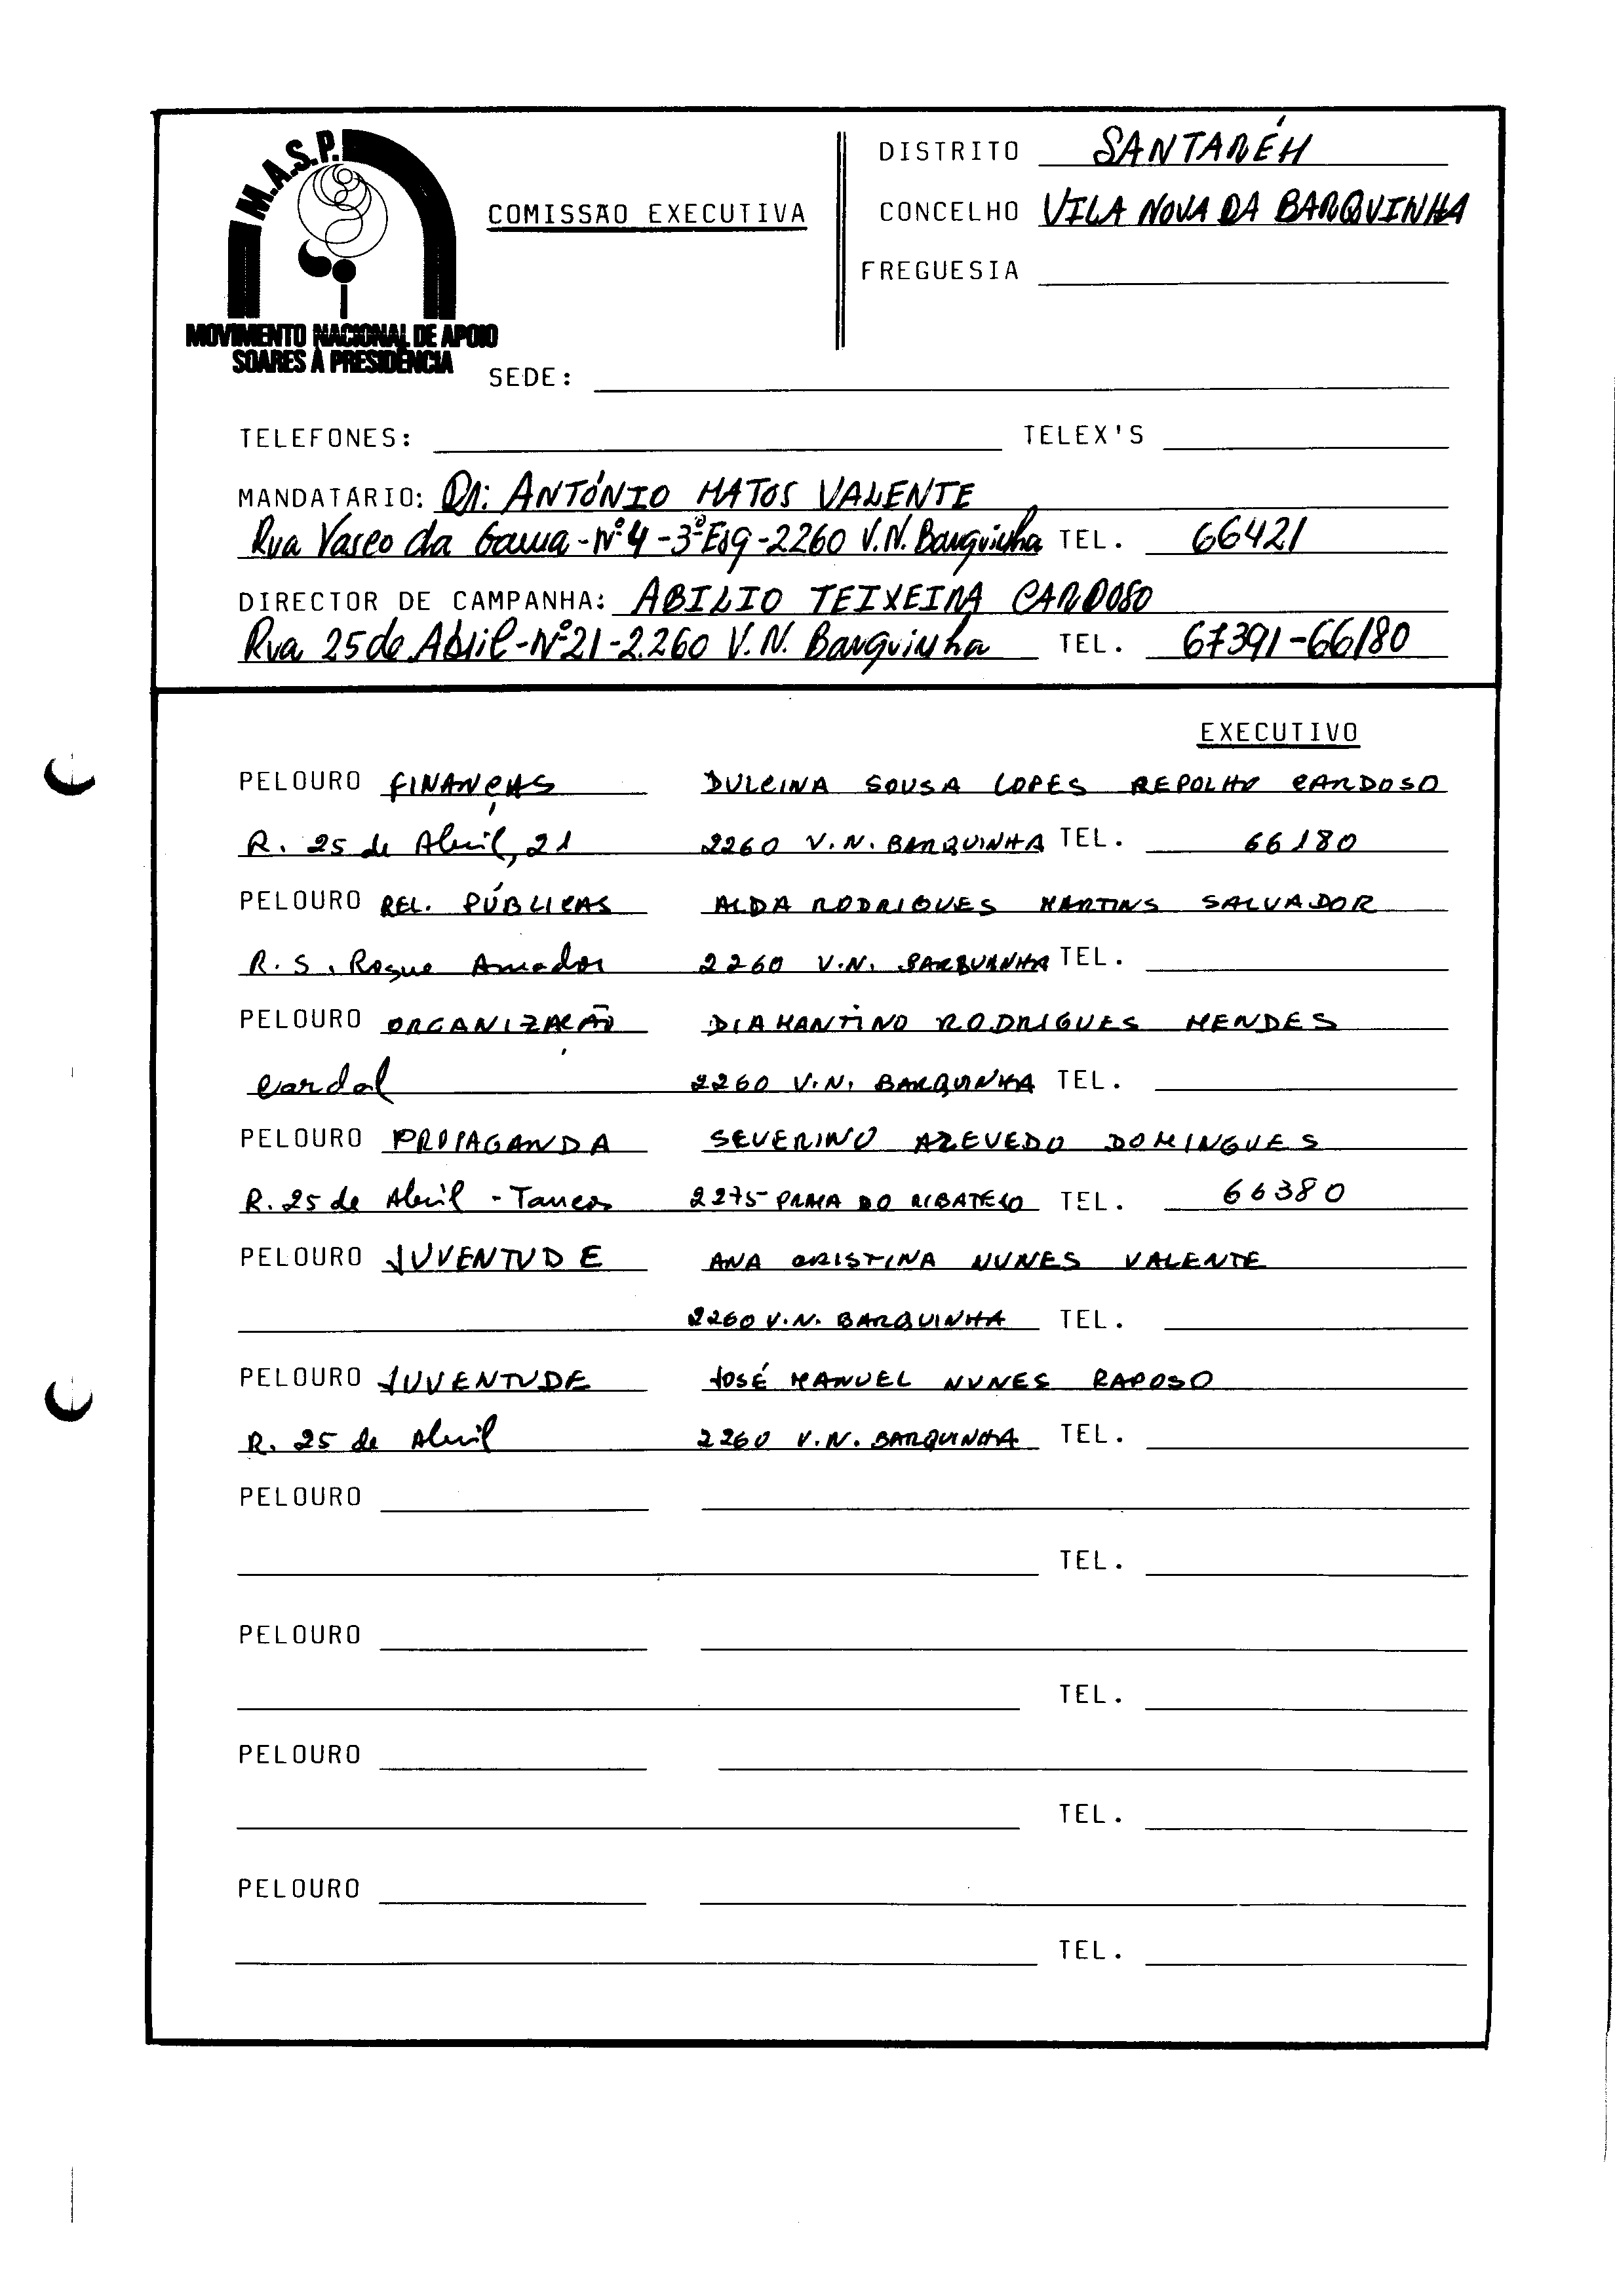 M.A.S.P.
MOVIMENTO NACIONAL DE APOIO
SOARES À PRESIDÊNCIA
COMISSÃO EXECUTIVA
DISTRITO SANTARÉM
CONCELHO VILA NOVA DA BARQUINHA
FREGUESIA
SEDE:
TELEFONES: TELEX'S
MANDATÁRIO: Dr. ANTÓNIO MATOS VALENTE
Rua Vasco da Gama - Nº 4 - 3º Esq - 2260 V.N. Barquinha TEL. 66421
DIRECTOR DE CAMPANHA: ABILIO TEIXEIRA CARDOSO
Rua 25 de Abril - Nº 21 - 2260 V.N. Barquinha TEL. 67391 - 66180
EXECUTIVO
PELOURO FINANÇAS DULCINA SOUSA LOPES REPOLHO CARDOSO
R. 25 de Abril, 21 2260 V.N. BARQUINHA TEL. 66180
PELOURO REL. PÚBLICAS ALDA RODRIGUES MARTINS SALVADOR
R. S. Roque Amador 2260 V.N. BARQUINHA TEL.
PELOURO ORGANIZAÇÃO DIAMANTINO RODRIGUES MENDES
Cardal 2260 V.N. BARQUINHA TEL.
PELOURO PROPAGANDA SEVERINO AZEVEDO DOMINGUES
R. 25 de Abril - Tancos 2275 PRAIA DO RIBATEJO TEL. 66380
PELOURO JUVENTUDE ANA CRISTINA NUNES VALENTE
2260 V.N. BARQUINHA TEL.
PELOURO JUVENTUDE JOSÉ MANUEL NUNES RAPOSO
R. 25 de Abril 2260 V.N. BARQUINHA TEL.
PELOURO
TEL.
PELOURO
TEL.
PELOURO
TEL.
PELOURO
TEL.